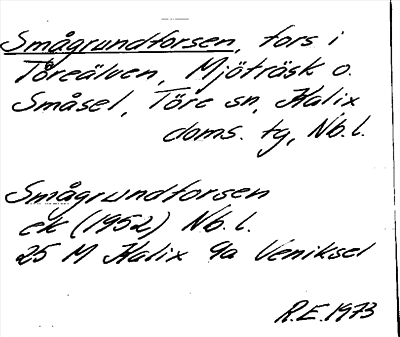 Smågrundforsen, fors i
Töreälven, Mjöträsk o.
Småsel, Töre sn, Kalix
doms. tg, Nb. l.
Smågrundforsen
ek (1952) Nb. l.
25 M Kalix 9a Veniksel
R.E. 1973